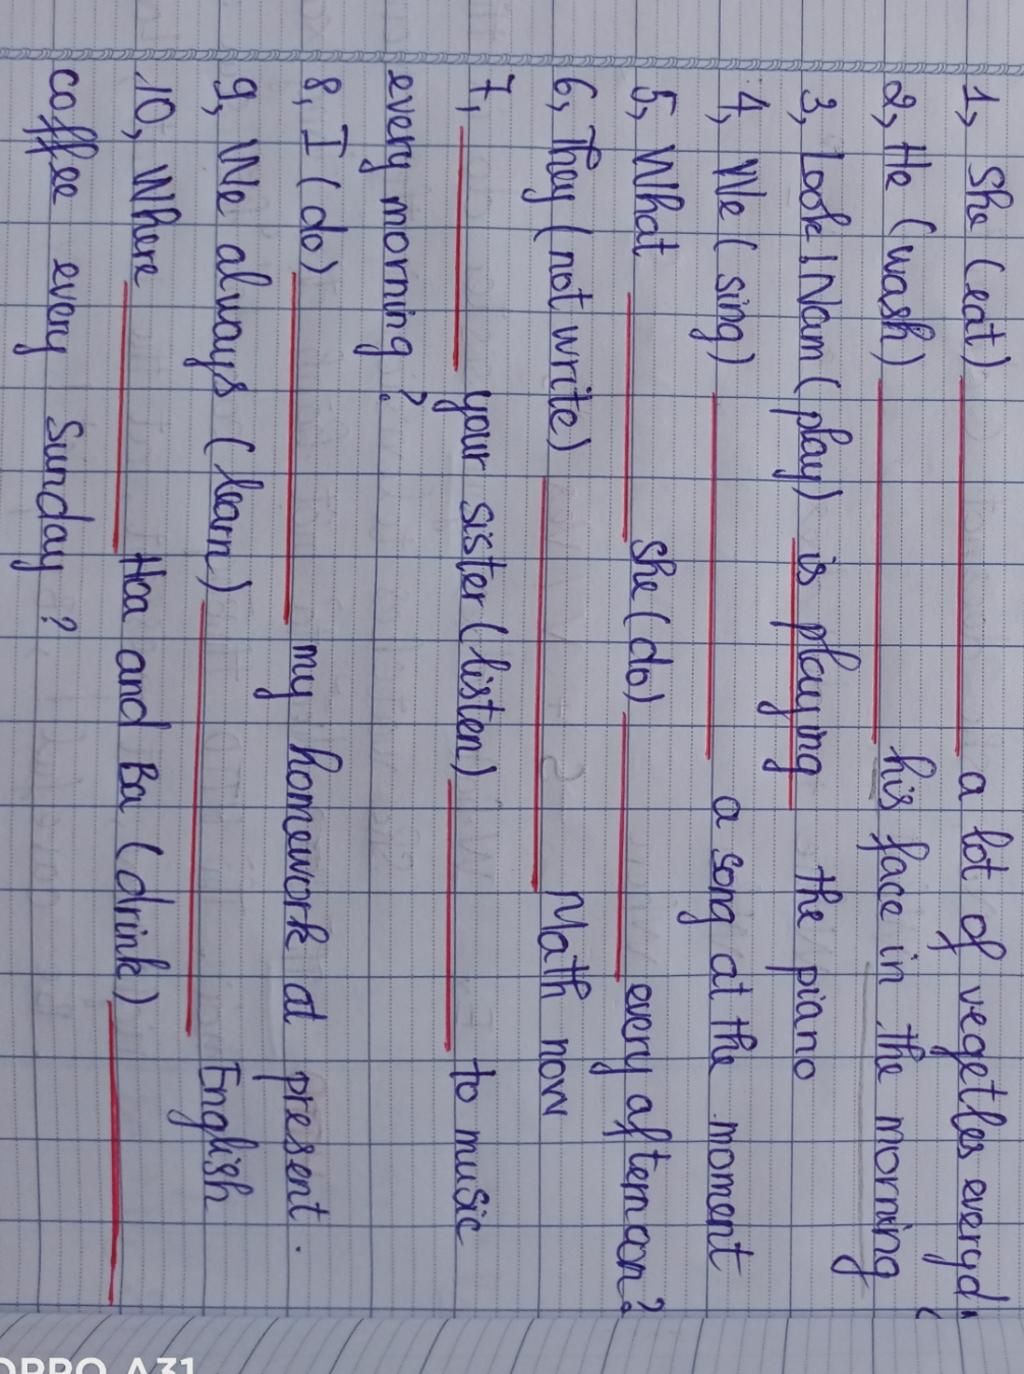 1, She (eat) a lot of vegetles everyd
2, He (wash) his face in the morning
3, Look! Nam (play) is playing the piano
4, We (sing) a song at the moment
5, What she (do) every afternoon?
6, They (not write) Math now
7, your sister (listen) to music
every morning?
8, I (do) my homework at present.
9, We always (learn) English
10, Where Hoa and Ba (drink)
coffee every Sunday?
OPPO A31